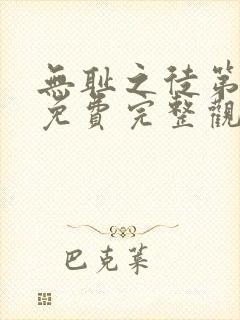 無耻之徒第
免費完整觀
巴克萊